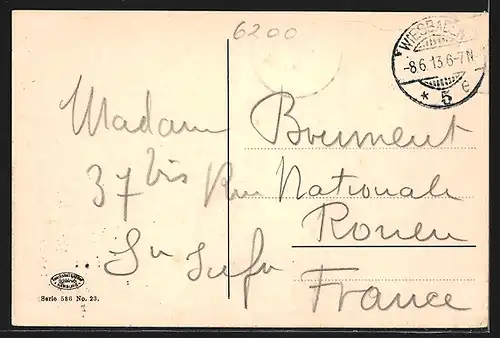 6200
WIESBADEN
-8.6.13.6-7N.
* 5 e
Madame Boument
37 bis Rue Nationale
Rouen
Sn Infre
France
Serie 586 No. 23.